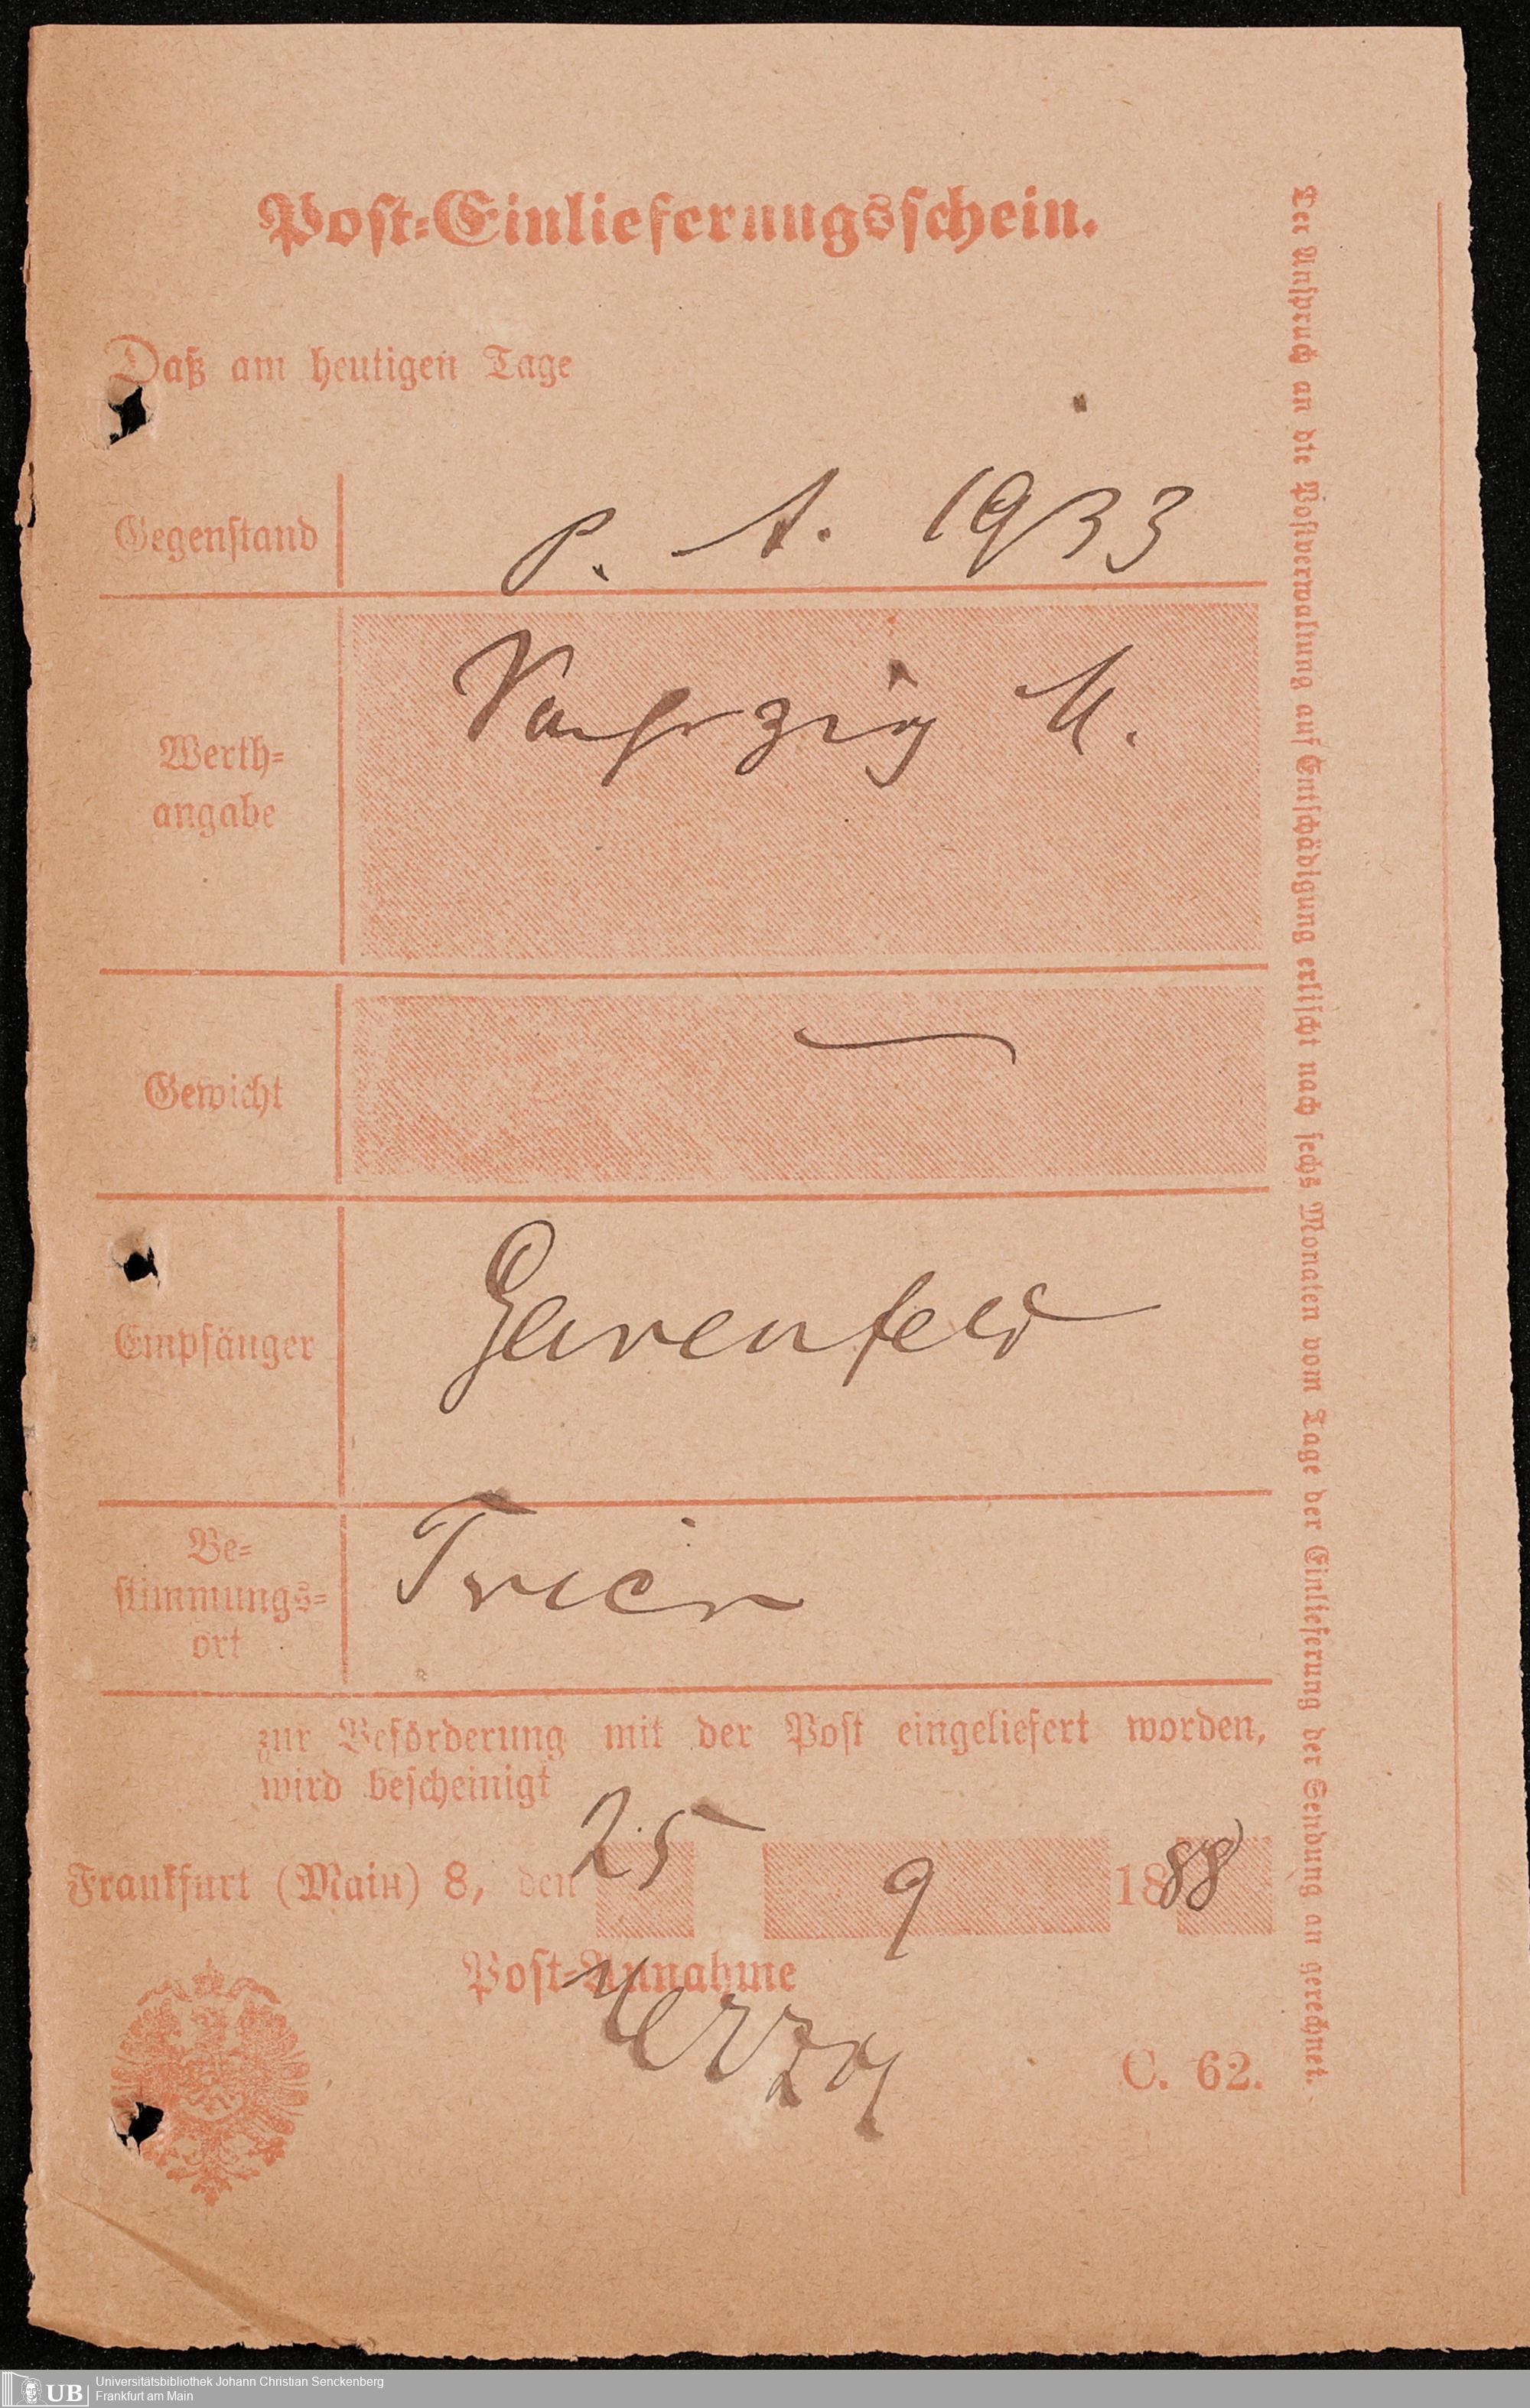 Post-Einlieferungsschein.
Daß am heutigen Tage
Gegenstand
P. A. 1933
Werth-
angabe
M.
Gewicht
—
Empfänger
Garenfeld
Be-
stimmungs-
ort
Trier
zur Beförderung mit der Post eingeliefert worden,
wird bescheinigt
Frankfurt (Main) 8, den 25 9 1888
Post-Annahme
C. 62.
Der Anspruch an die Postverwaltung auf Entschädigung erlischt nach sechs Monaten vom Tage der Einlieferung der Sendung an gerechnet.
UB
Universitätsbibliothek Johann Christian Senckenberg
Frankfurt am Main